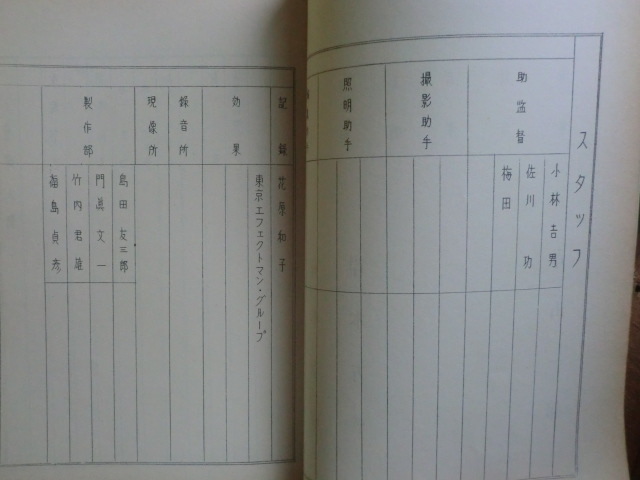 スタッフ
助監督
小林吉男
佐川 功
梅田
撮影助手
照明助手
記録
花原和子
効果
東京エフェクトマン・グループ
録音所
現像所
製作部
島田友三郎
門眞文一
竹内君雄
福島貞彦